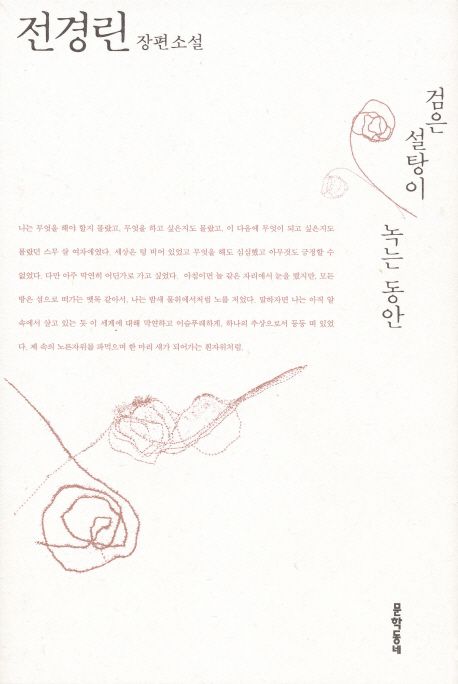 전경린 장편소설
검은
설탕이
녹는 동안
나는 무엇을 해야 할지 몰랐고, 무엇을 하고 싶은지도 몰랐고, 이 다음에 무엇이 되고 싶은지도
몰랐던 스무 살 여자애였다. 세상은 텅 비어 있었고 무엇을 해도 심심했고 아무것도 긍정할 수
없었다. 다만 아주 막연히 어딘가로 가고 싶었다. 아침이면 늘 같은 자리에서 눈을 떴지만, 모든
밤은 섬으로 떠가는 뗏목 같아서, 나는 밤새 물위에서처럼 노를 저었다. 말하자면 나는 아직 알
속에서 살고 있는 듯 이 세계에 대해 막연하고 어슴푸레하게, 하나의 추상으로서 둥둥 떠 있었
다. 제 속의 노른자위를 파먹으며 한 마리 새가 되어가는 흰자위처럼.
문학동네